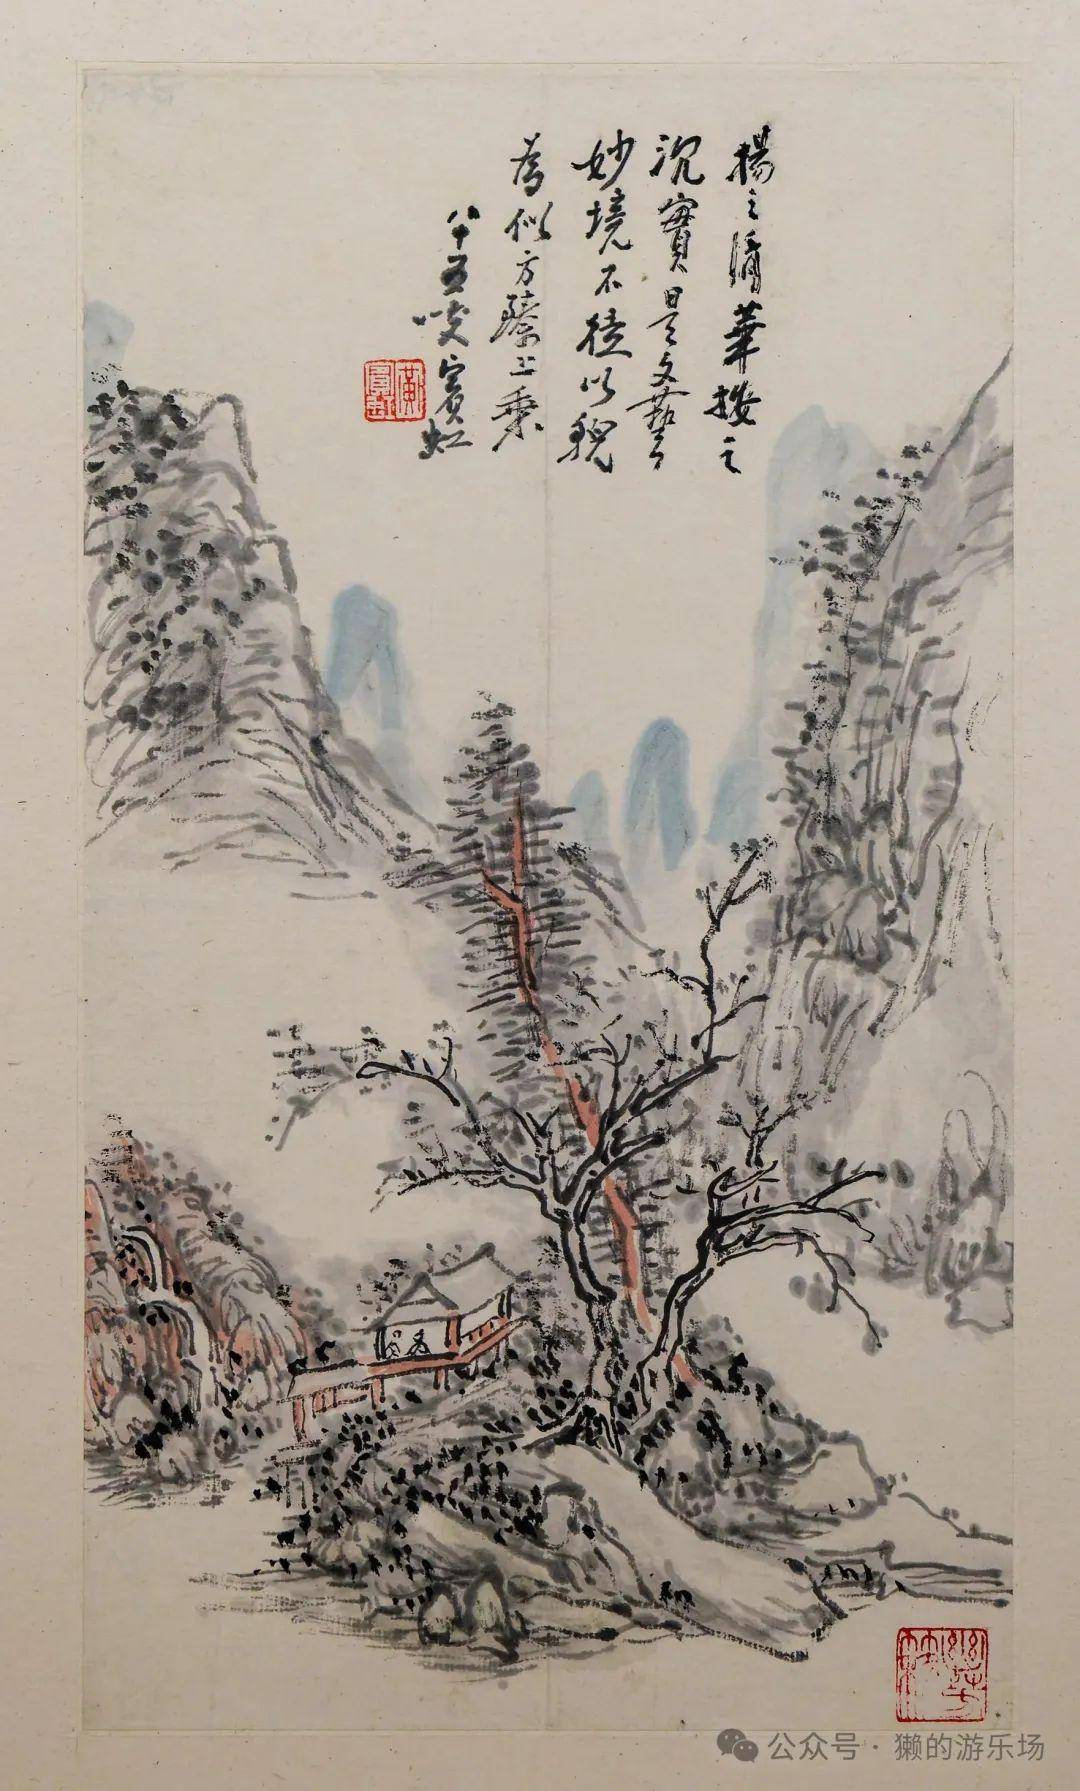 揚之清華按之
沉實是文藝
妙境不徒以貌
為似方臻上乘
八十五叟賓虹
黃賓虹
公众号 · 獭的游乐场